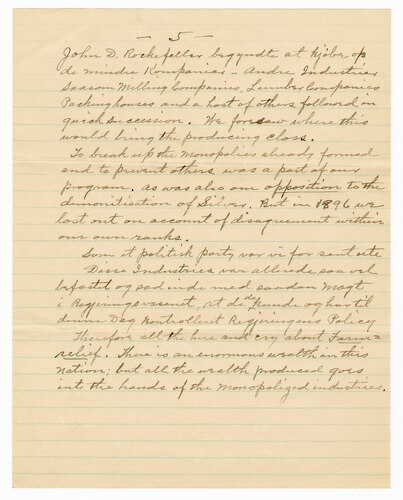 - 5 -
John D. Rockefeller begyndte at kjöbe op
de mindre Kompanier - Andre Industrier
Saasom Milling Companies, Lumber Companies
Packinghouses and a host of others followed in
quick succession. We foresaw where this
would bring the producing class.
To break up the Monopolies already formed
and to prevent others was a part of our
program. as was also our opposition to the
demonitization of Silver. But in 1896 we
lost out on account of disagreement within
our own ranks.
Som et politisk party var vi for sent ute
Disse Industries var allerede saa vel
befæstet og sad inde med saadan Magt
i Regjeringsvesenet, at de kunde og har til
denne Dag kontrolleret Regjeringens Policy
Therefore all the hue and cry about Farm=
relief. There is an enormous wealth in this
nation; but all the wealth produced goes
into the hands of the monopolized industries.